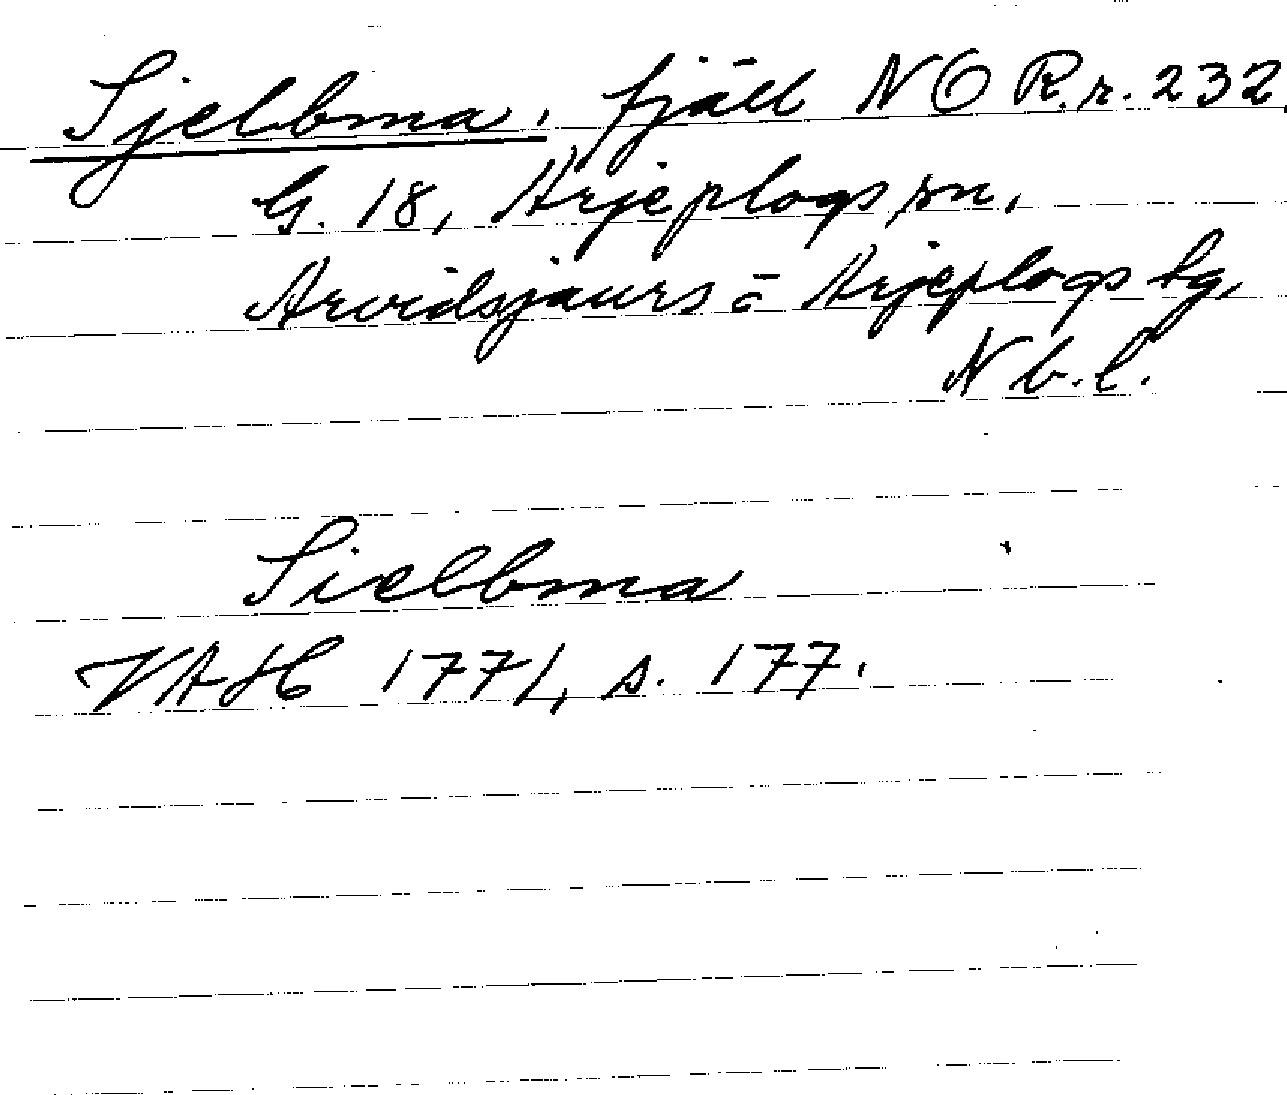 Sjelbma, fjäll NO R.r. 232,
G. 18, Arjeplogs sn,
Arvidsjaurs o Arjeplogs tg,
Nb.l.
Sielbma
VAH 1771, s. 177.